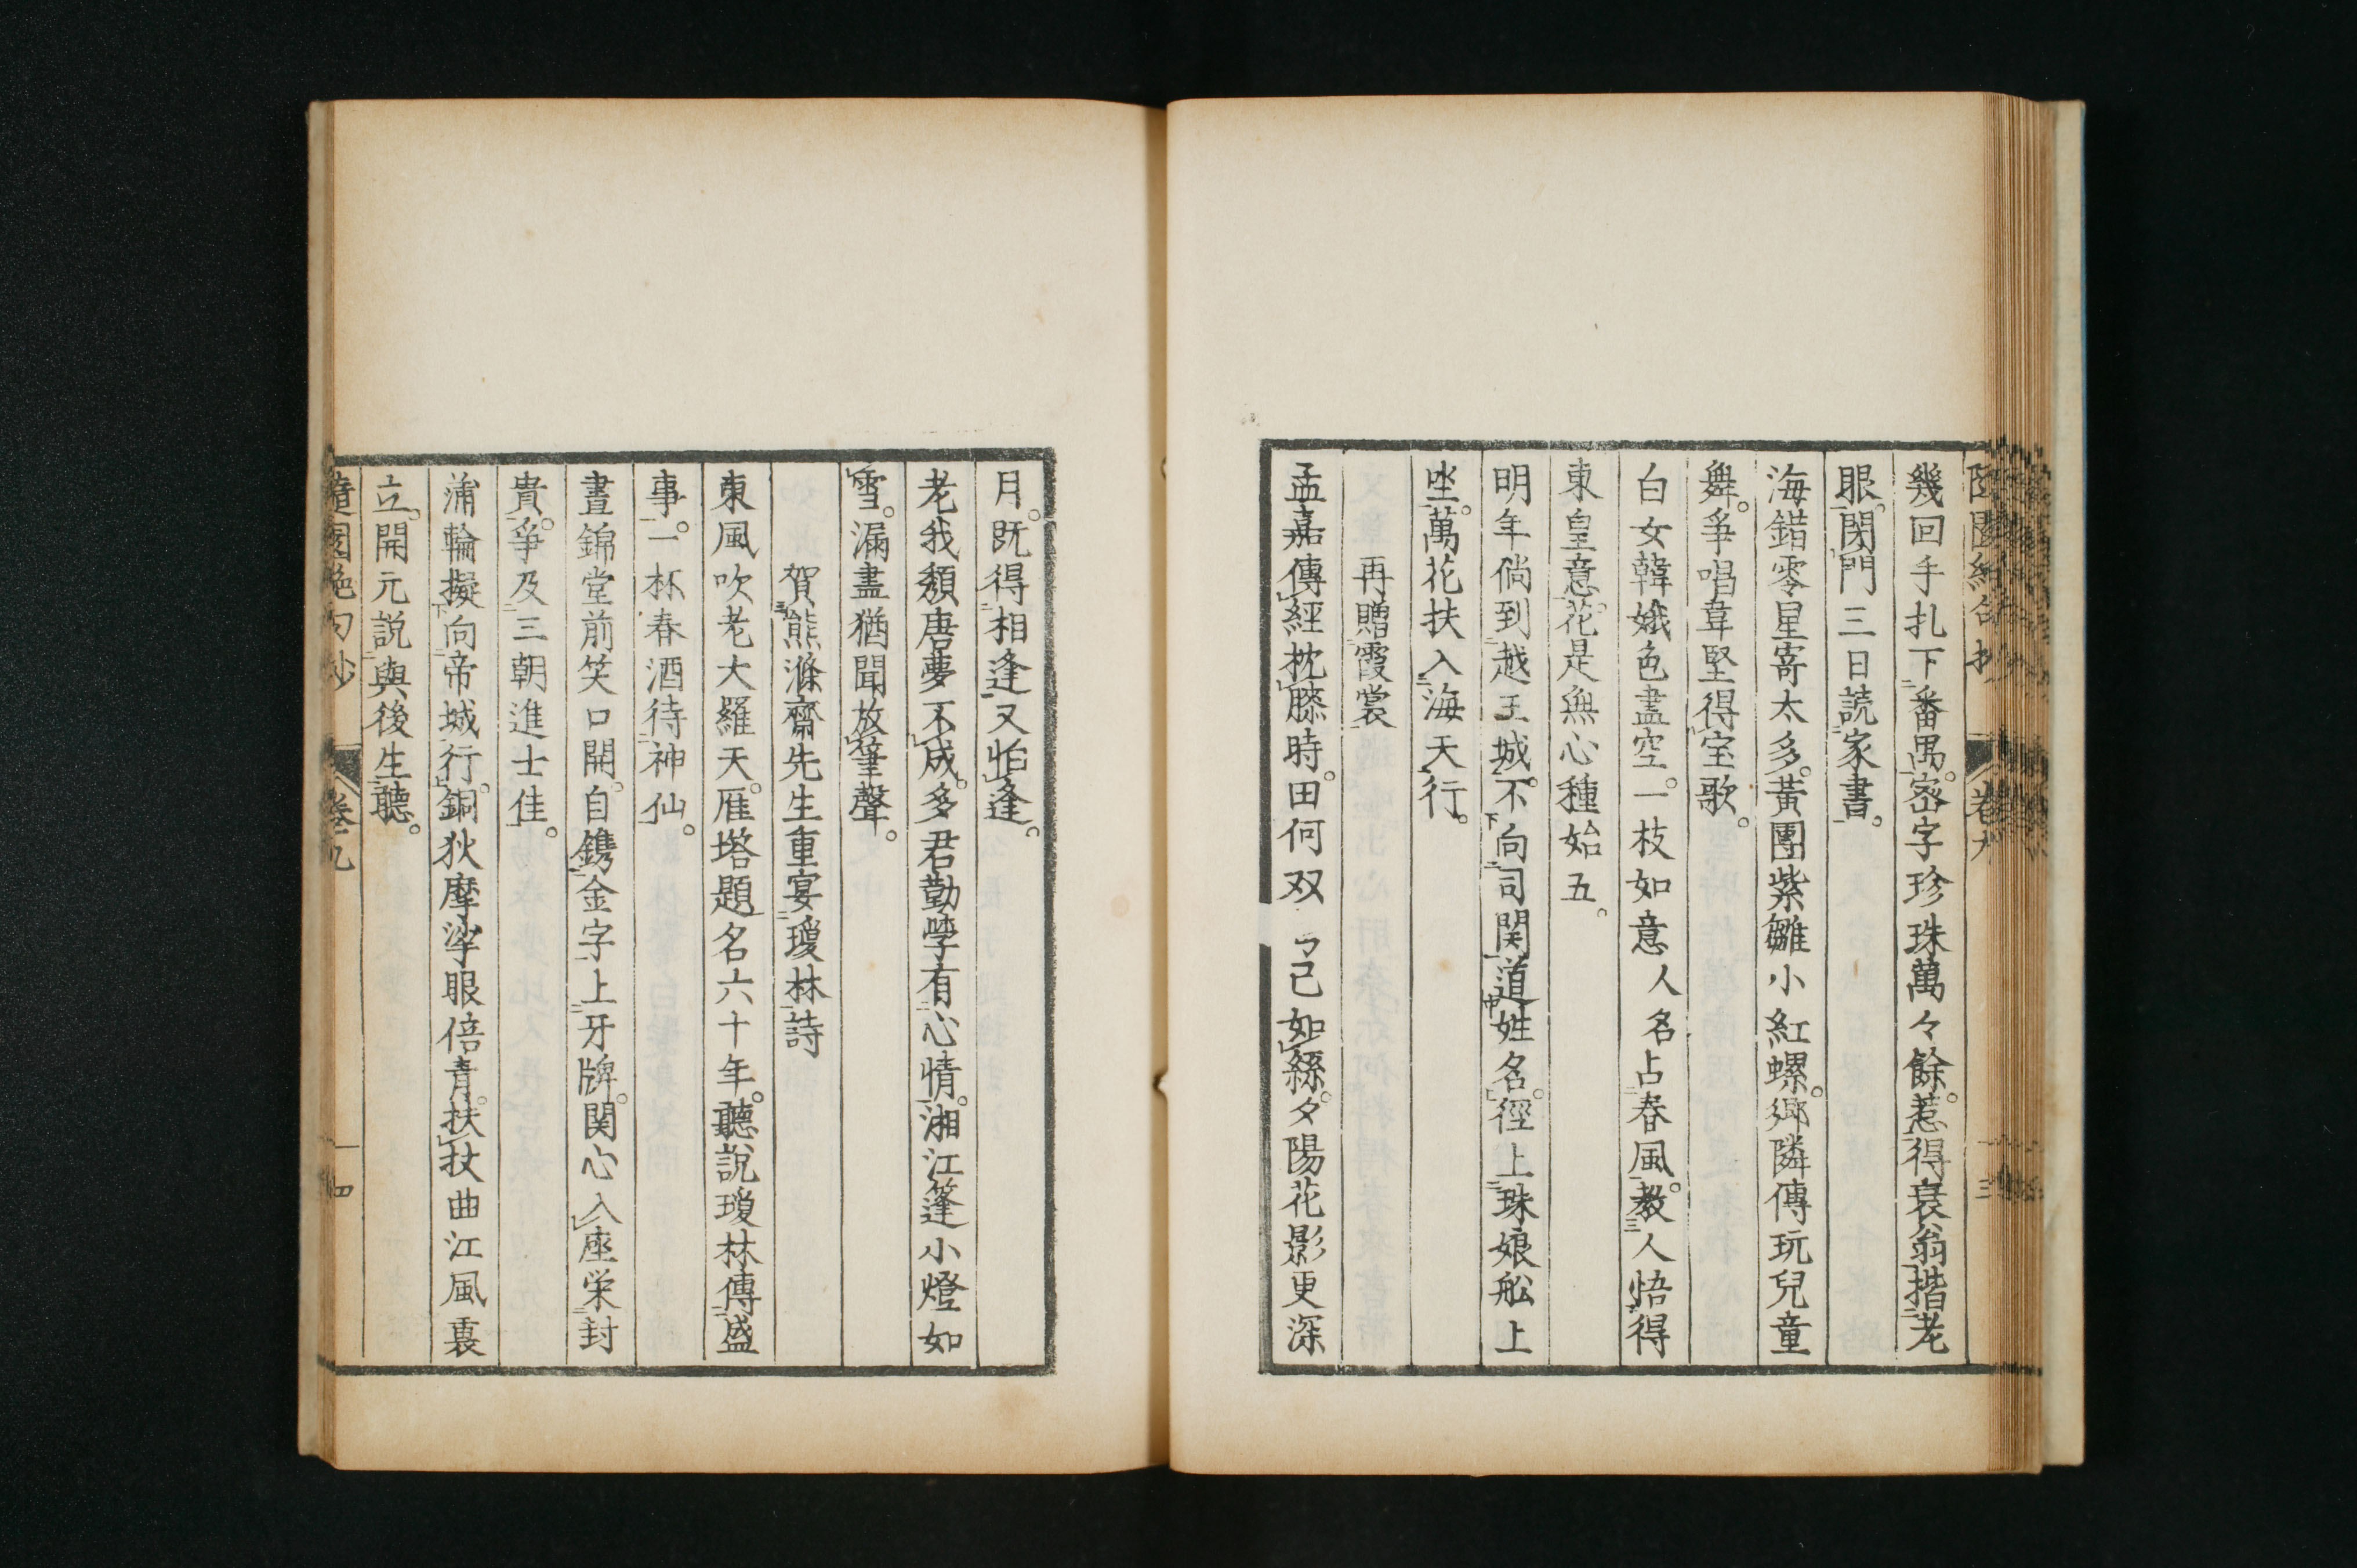 幾回手扎下番禺。密字珍珠萬々餘。惹得衰翁揩老
眼。閉門三日読家書。
海錯零星寄太多。黃團紫雛小紅螺。鄉隣傳玩兒童
舞。爭唱韋堅得宝歌。
白女韓娥色盡空。一枝如意人名占春風。教人悟得
東皇意。花是無心種始五。
明年倘到越王城。不向司関道姓名。徑上珠娘舩上
坐。萬花扶入海天行。
再贈霞裳
孟嘉傳經枕膝時。田何双 己如絲。夕陽花影更深
月。既得相逢又怕逢。
老我頹唐夢不成。多君勤學有心情。湘江篷小燈如
雪。漏盡猶聞放筆聲。
賀熊滌齋先生重宴瓊林詩
東風吹老大羅天。雁塔題名六十年。聽說瓊林傳盛
事。一杯春酒待神仙。
晝錦堂前笑口開。自鐫金字上牙牌。関心入座栄封
貴。爭及三朝進士佳。
蒲輪擬向帝城行。銅狄摩挲眼倍青。扶杖曲江風裏
立。開元説與後生聽。
隨園絶句抄 卷九 四